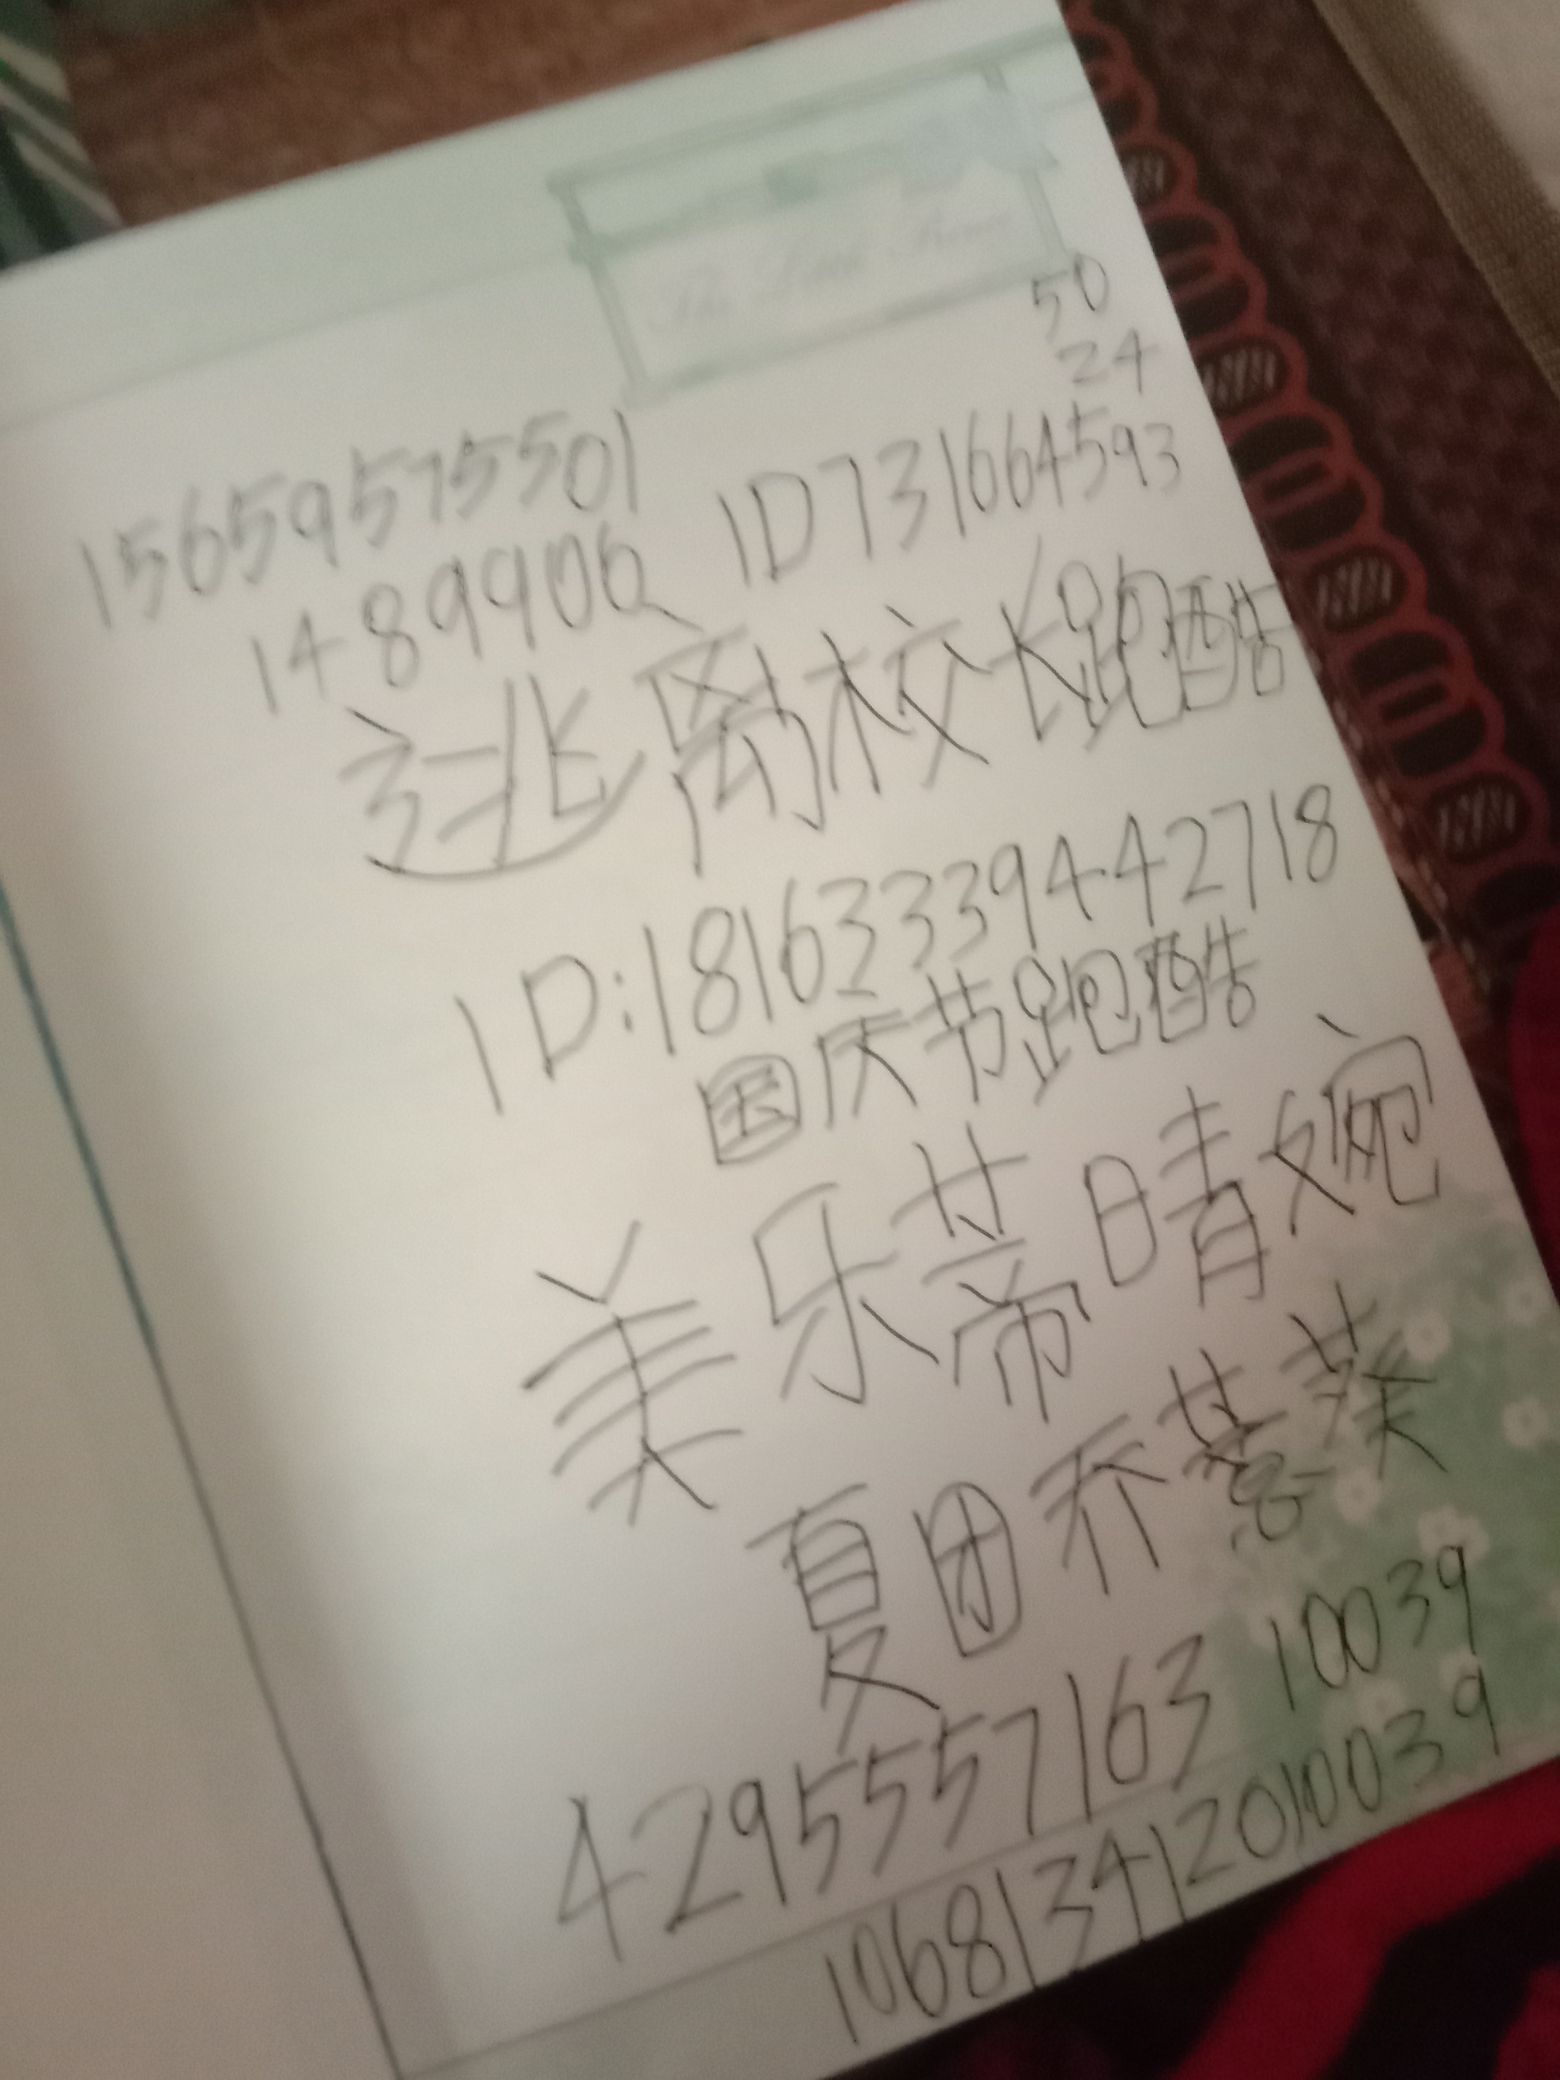 50
24
15659575501
1489906 ID731664593
逃离校长跑酷
ID:1816333944 2718
国庆节跑酷
美乐蒂晴婉
夏团乔慕葵
4295557163 10039
10681341201 0039